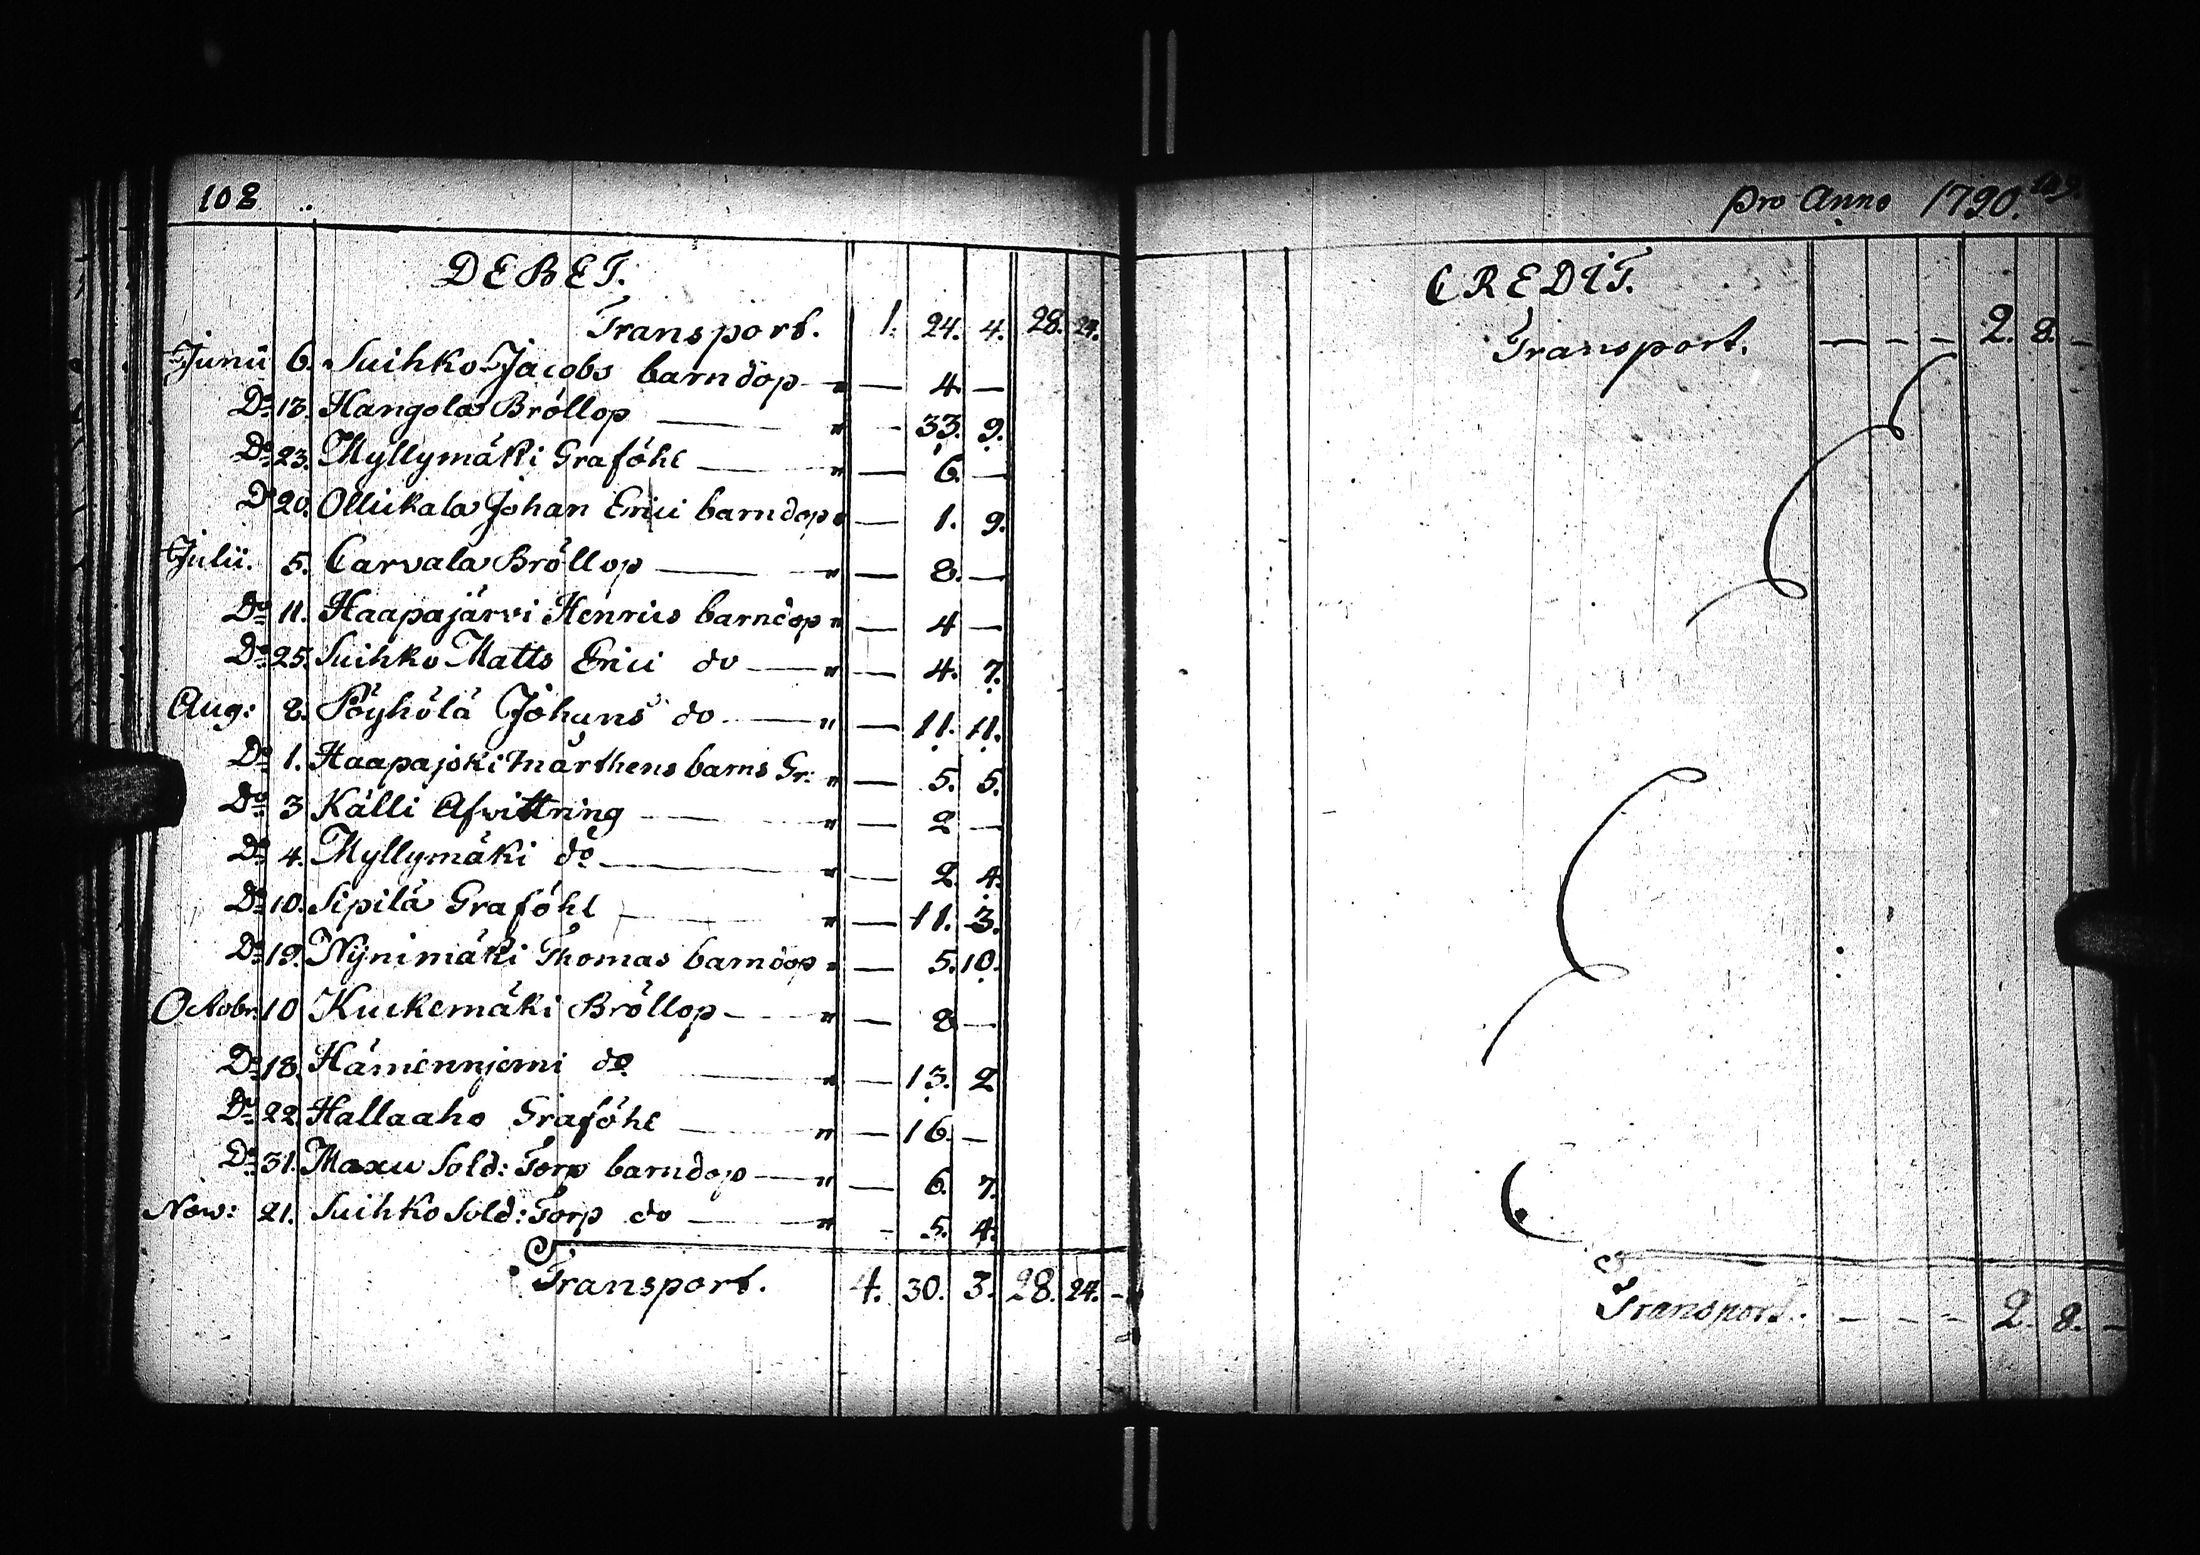 108
DEBET.
Transport. 1. 24. 4. 28. 24.
Junii 6. Suihko Jacobs barndop " — 4. —
Do 13. Hangola Bröllop — " — 33. 9.
Do 23. Myllymäki Graföhl — " — 6. —
Do 20. Ollickala Johan Erici barndop " — 1. 9.
Julii. 5. Carvala Bröllop — " — 8. —
Do 11. Haapajärvi Henrics barndop " — 4 —
Do 25. Suihko Matts Erici do — " — 4. 7.
Aug: 8. Pöyhölä Johans do — " — 11. 11.
Do 1. Haapajoki Mårthens barns Gr: " — 5. 5.
Do 3 Källi Afwittring — " — 2 —
Do 4. Myllymäki do — " — 2. 4.
Do 10. Sipilä Graföhl — " — 11. 3.
Do 19. Nÿnimäki Thomas barndop " — 5. 10.
Octobr: 10 Kuckemäki Bröllop — " — 8 —
Do 18. Hämennjemi do — " — 13. 2
Do 22. Hallaaho Graföhl — " — 16. —
Do 31. Maxu Sold: Torp barndop — " — 6. 7.
Now: 21. Suihko Sold: Torp do — " — 5. 4.
Transport. 4. 30. 3. 28. 24. —
Pro Anno 1790.
CREDIT.
Transport. — — — 2. 8. —
Transport. — — — 2. 8. —